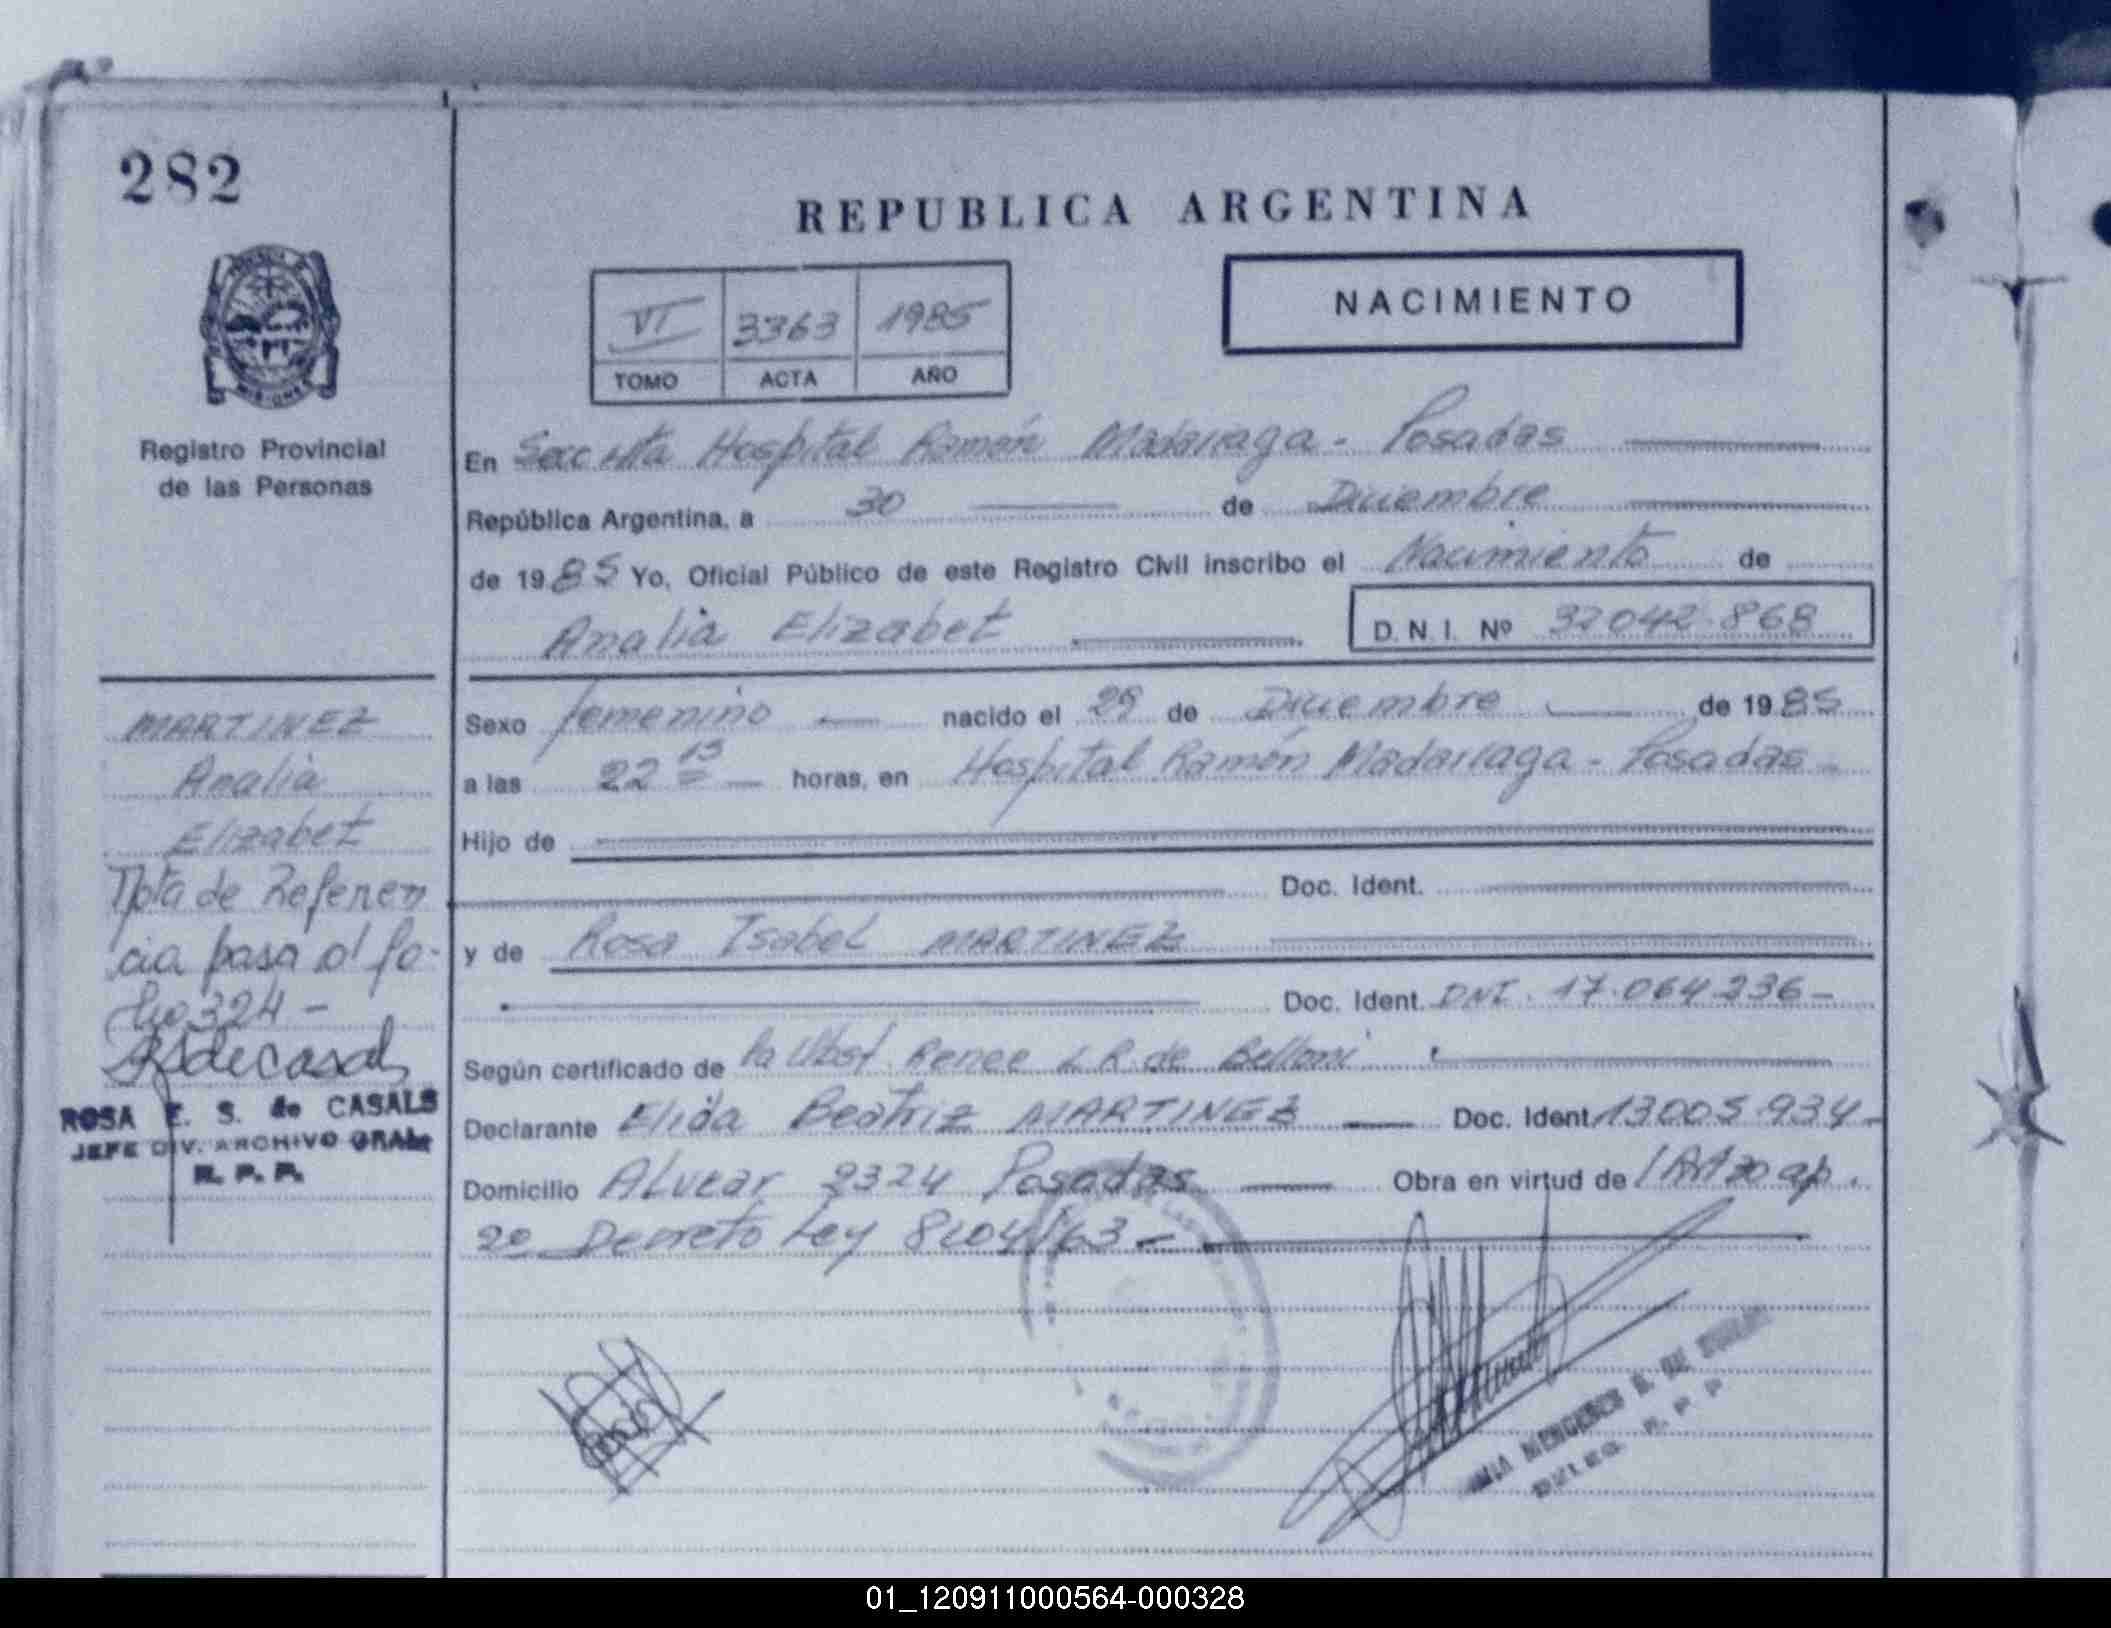 282
REPUBLICA ARGENTINA
VI 3363 1985
TOMO ACTA AÑO
NACIMIENTO
Registro Provincial
de las Personas
En Secc Hospital Ramón Madariaga - Posadas
República Argentina, a 30 de Diciembre
de 1985 Yo, Oficial Público de este Registro Civil inscribo el Nacimiento de
Analia Elizabet D.N.I. Nº 32042.868
Sexo femenino nacido el 29 de Diciembre de 1985
a las 22 15 horas, en Hospital Ramón Madariaga - Posadas -
Hijo de
Doc. Ident.
y de Rosa Isabel MARTINEZ
Doc. Ident. DNI. 17.064.236 -
Según certificado de la Obst. Renee L R. de Belloni
Declarante Elida Beatriz MARTINEZ Doc. Ident. 13005.934 -
Domicilio Alvear 2324 Posadas Obra en virtud de ap.
2º Decreto Ley 8204/63 -
MARTINEZ
Analia
Elizabet
Nota de Referen
cia pasa al fo-
lio 324 -
ROSA E. S. de CASALS
JEFE DIV. ARCHIVO GRAL
R. P. P.
DELEG. R. P. P.
01_120911000564-000328